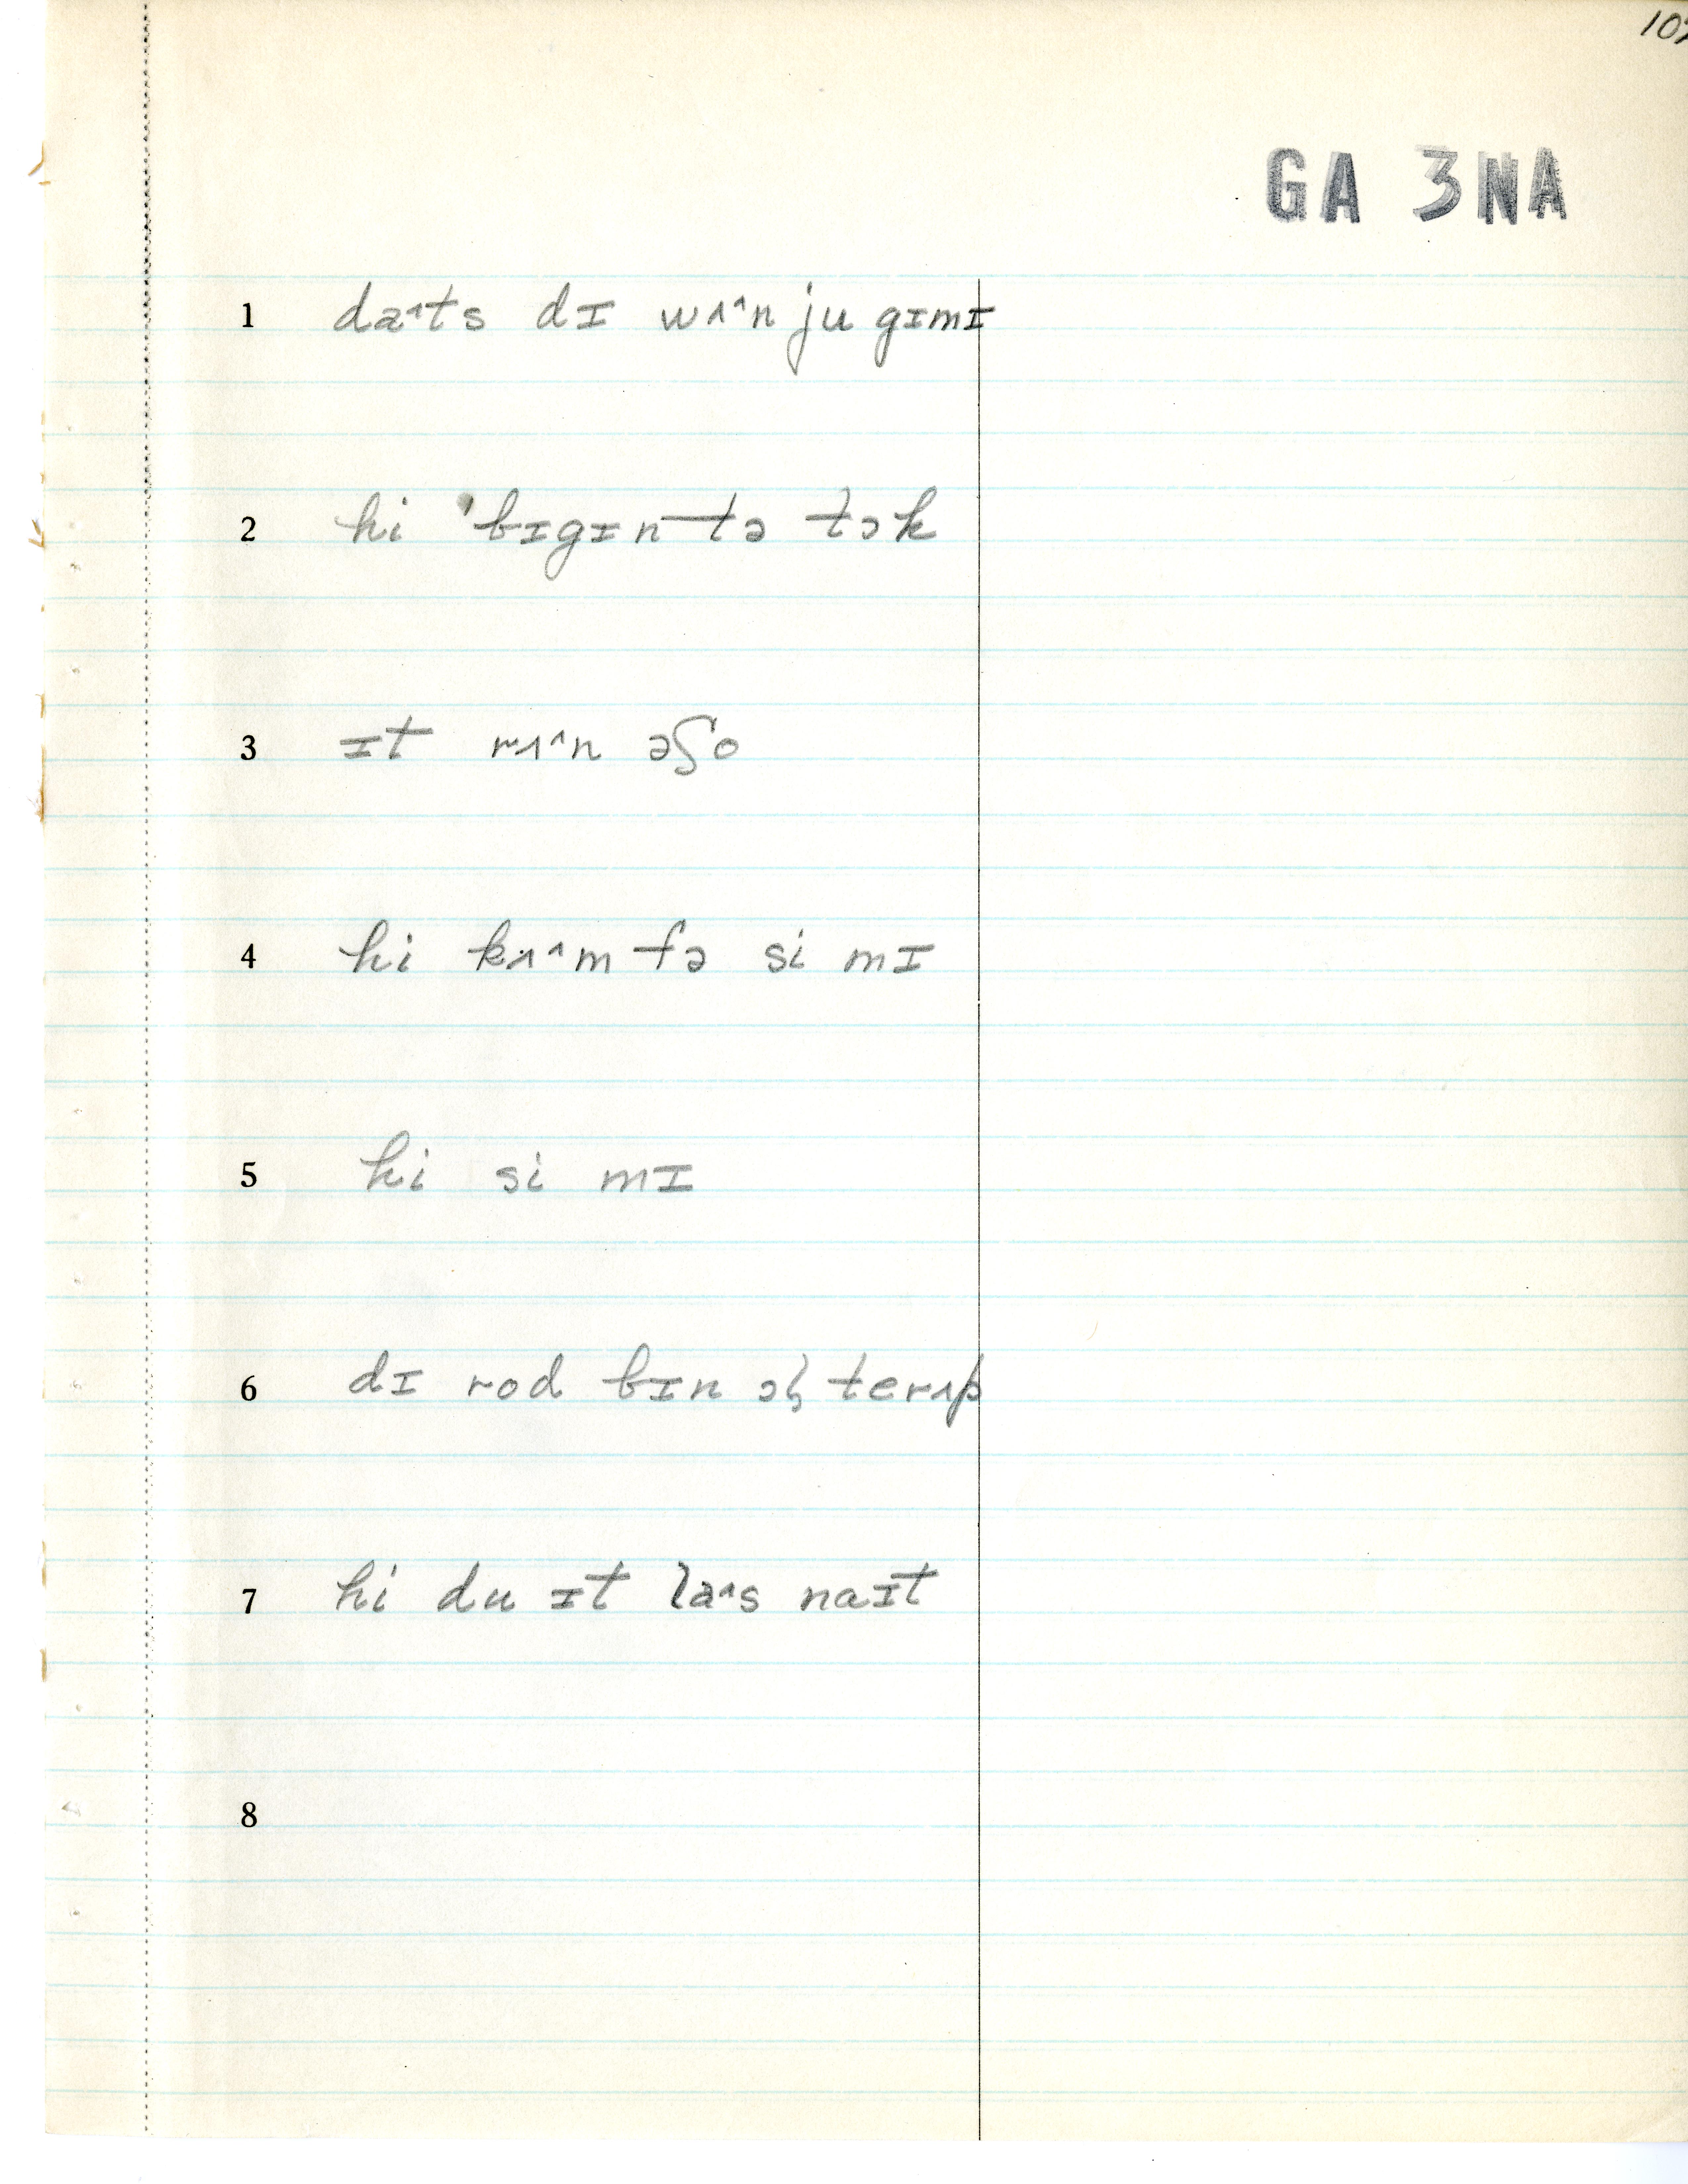 10
GA 3NA
1 da˄ts dɪ wʌ˄n ju gɪmɪ
2 hi ˈbɪgɪn tə tɔk
3 ɪt rʌ˄n əʃo
4 hi kʌ˄m fə si mɪ
5 hi si mɪ
6 dɪ rod bɪn terʌp
7 hi du ɪt la˄s naɪt
8